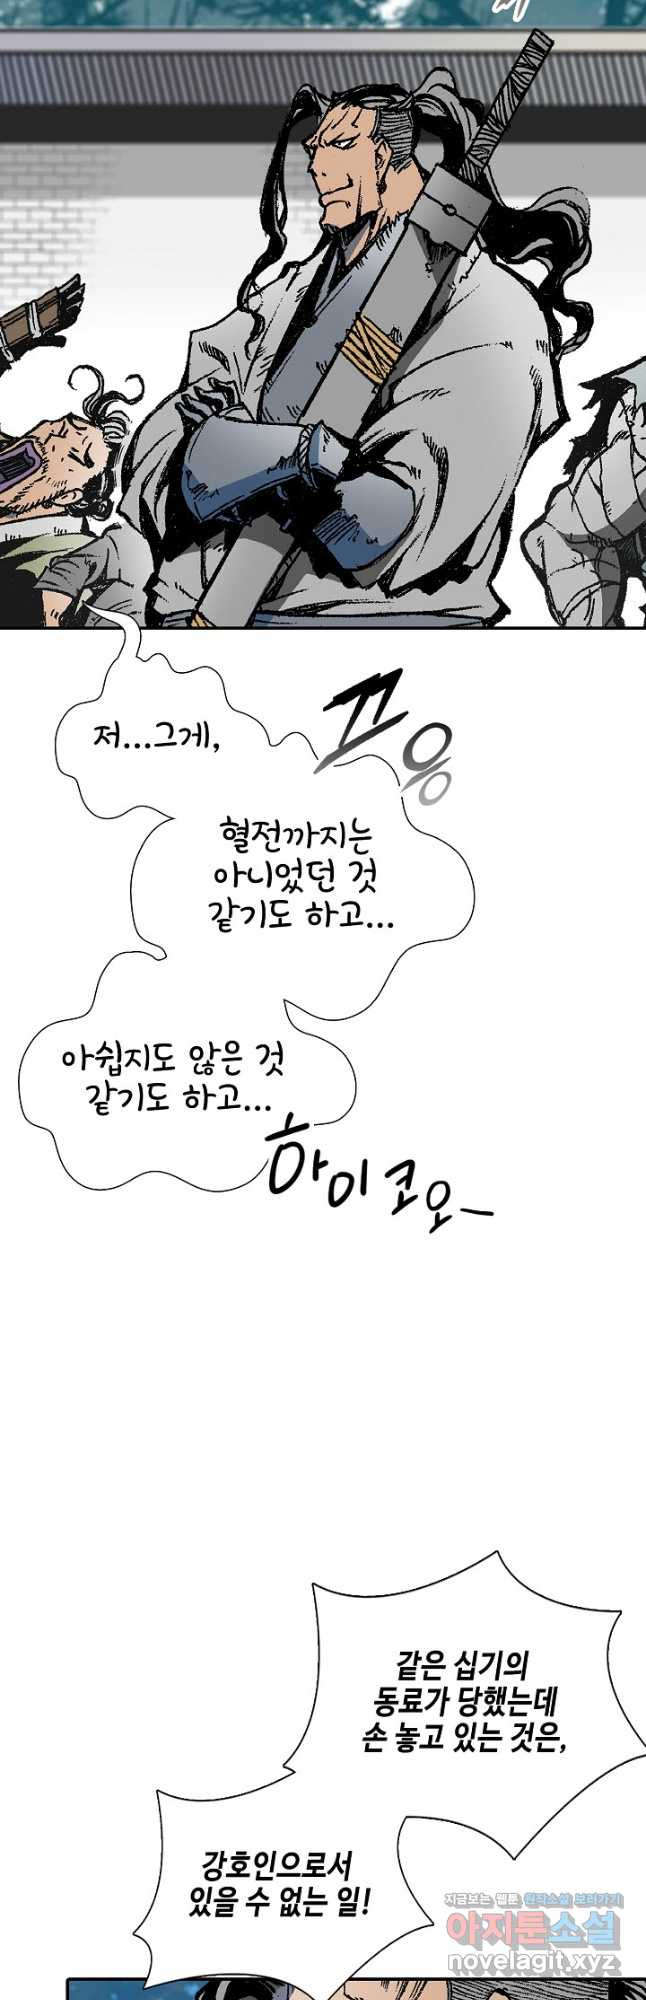 저...그게,
끄응
혈전까지는
아니었던 것
같기도 하고...
아쉽지도 않은 것
같기도 하고...
하이코오~
같은 십기의
동료가 당했는데
손 놓고 있는 것은,
강호인으로서
있을 수 없는 일!
지금보는 웹툰 원작소설 보러가기
아지툰소설
novelagit.xyz